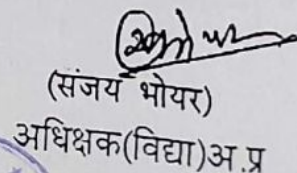 (संजय भोयर)
अधिक्षक(विद्या)अ.प्र